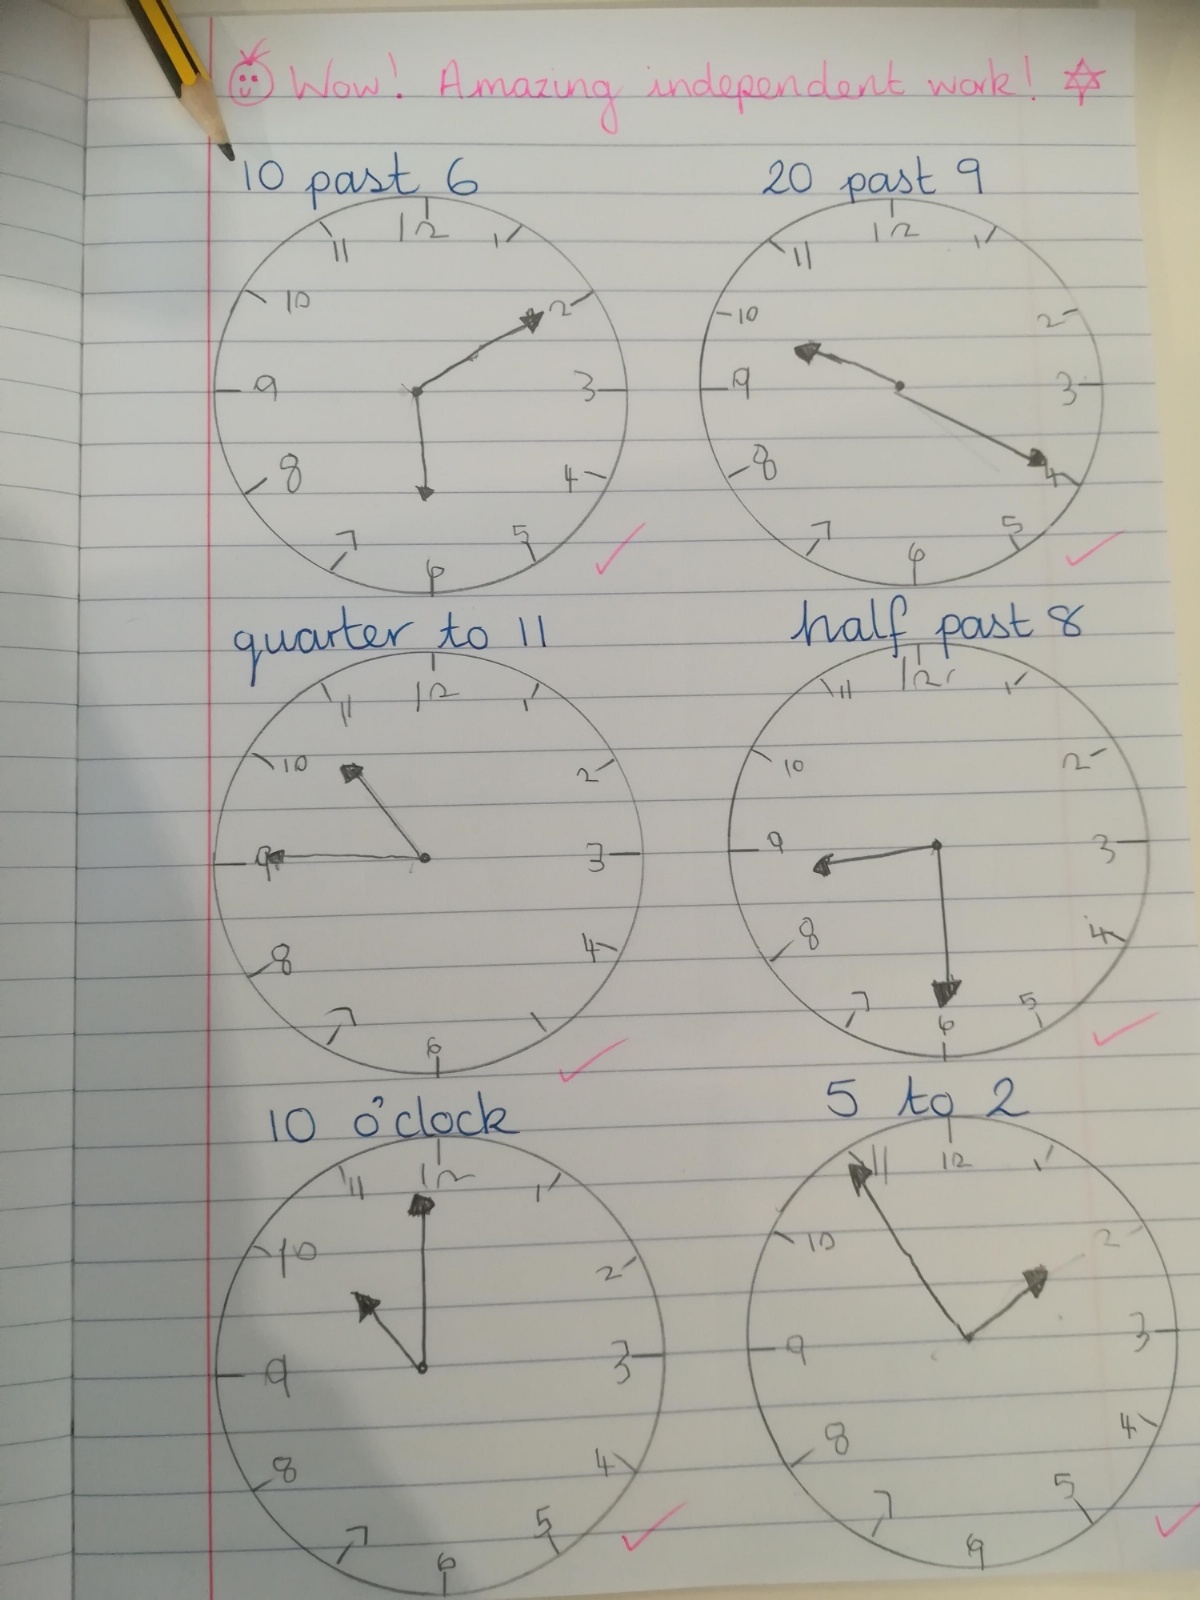 Wow! Amazing independent work!
10 past 6
20 past 9
12
11
1
10
2
9
3
8
4
7
5
6
12
11
1
10
2
9
3
8
4
7
5
6
quarter to 11
half past 8
12
11
1
10
2
9
3
8
4
7
6
12
11
1
10
2
9
3
8
4
7
5
6
10 o'clock
5 to 2
12
11
1
10
2
9
3
8
4
7
5
6
12
11
1
10
2
9
3
8
4
7
5
6